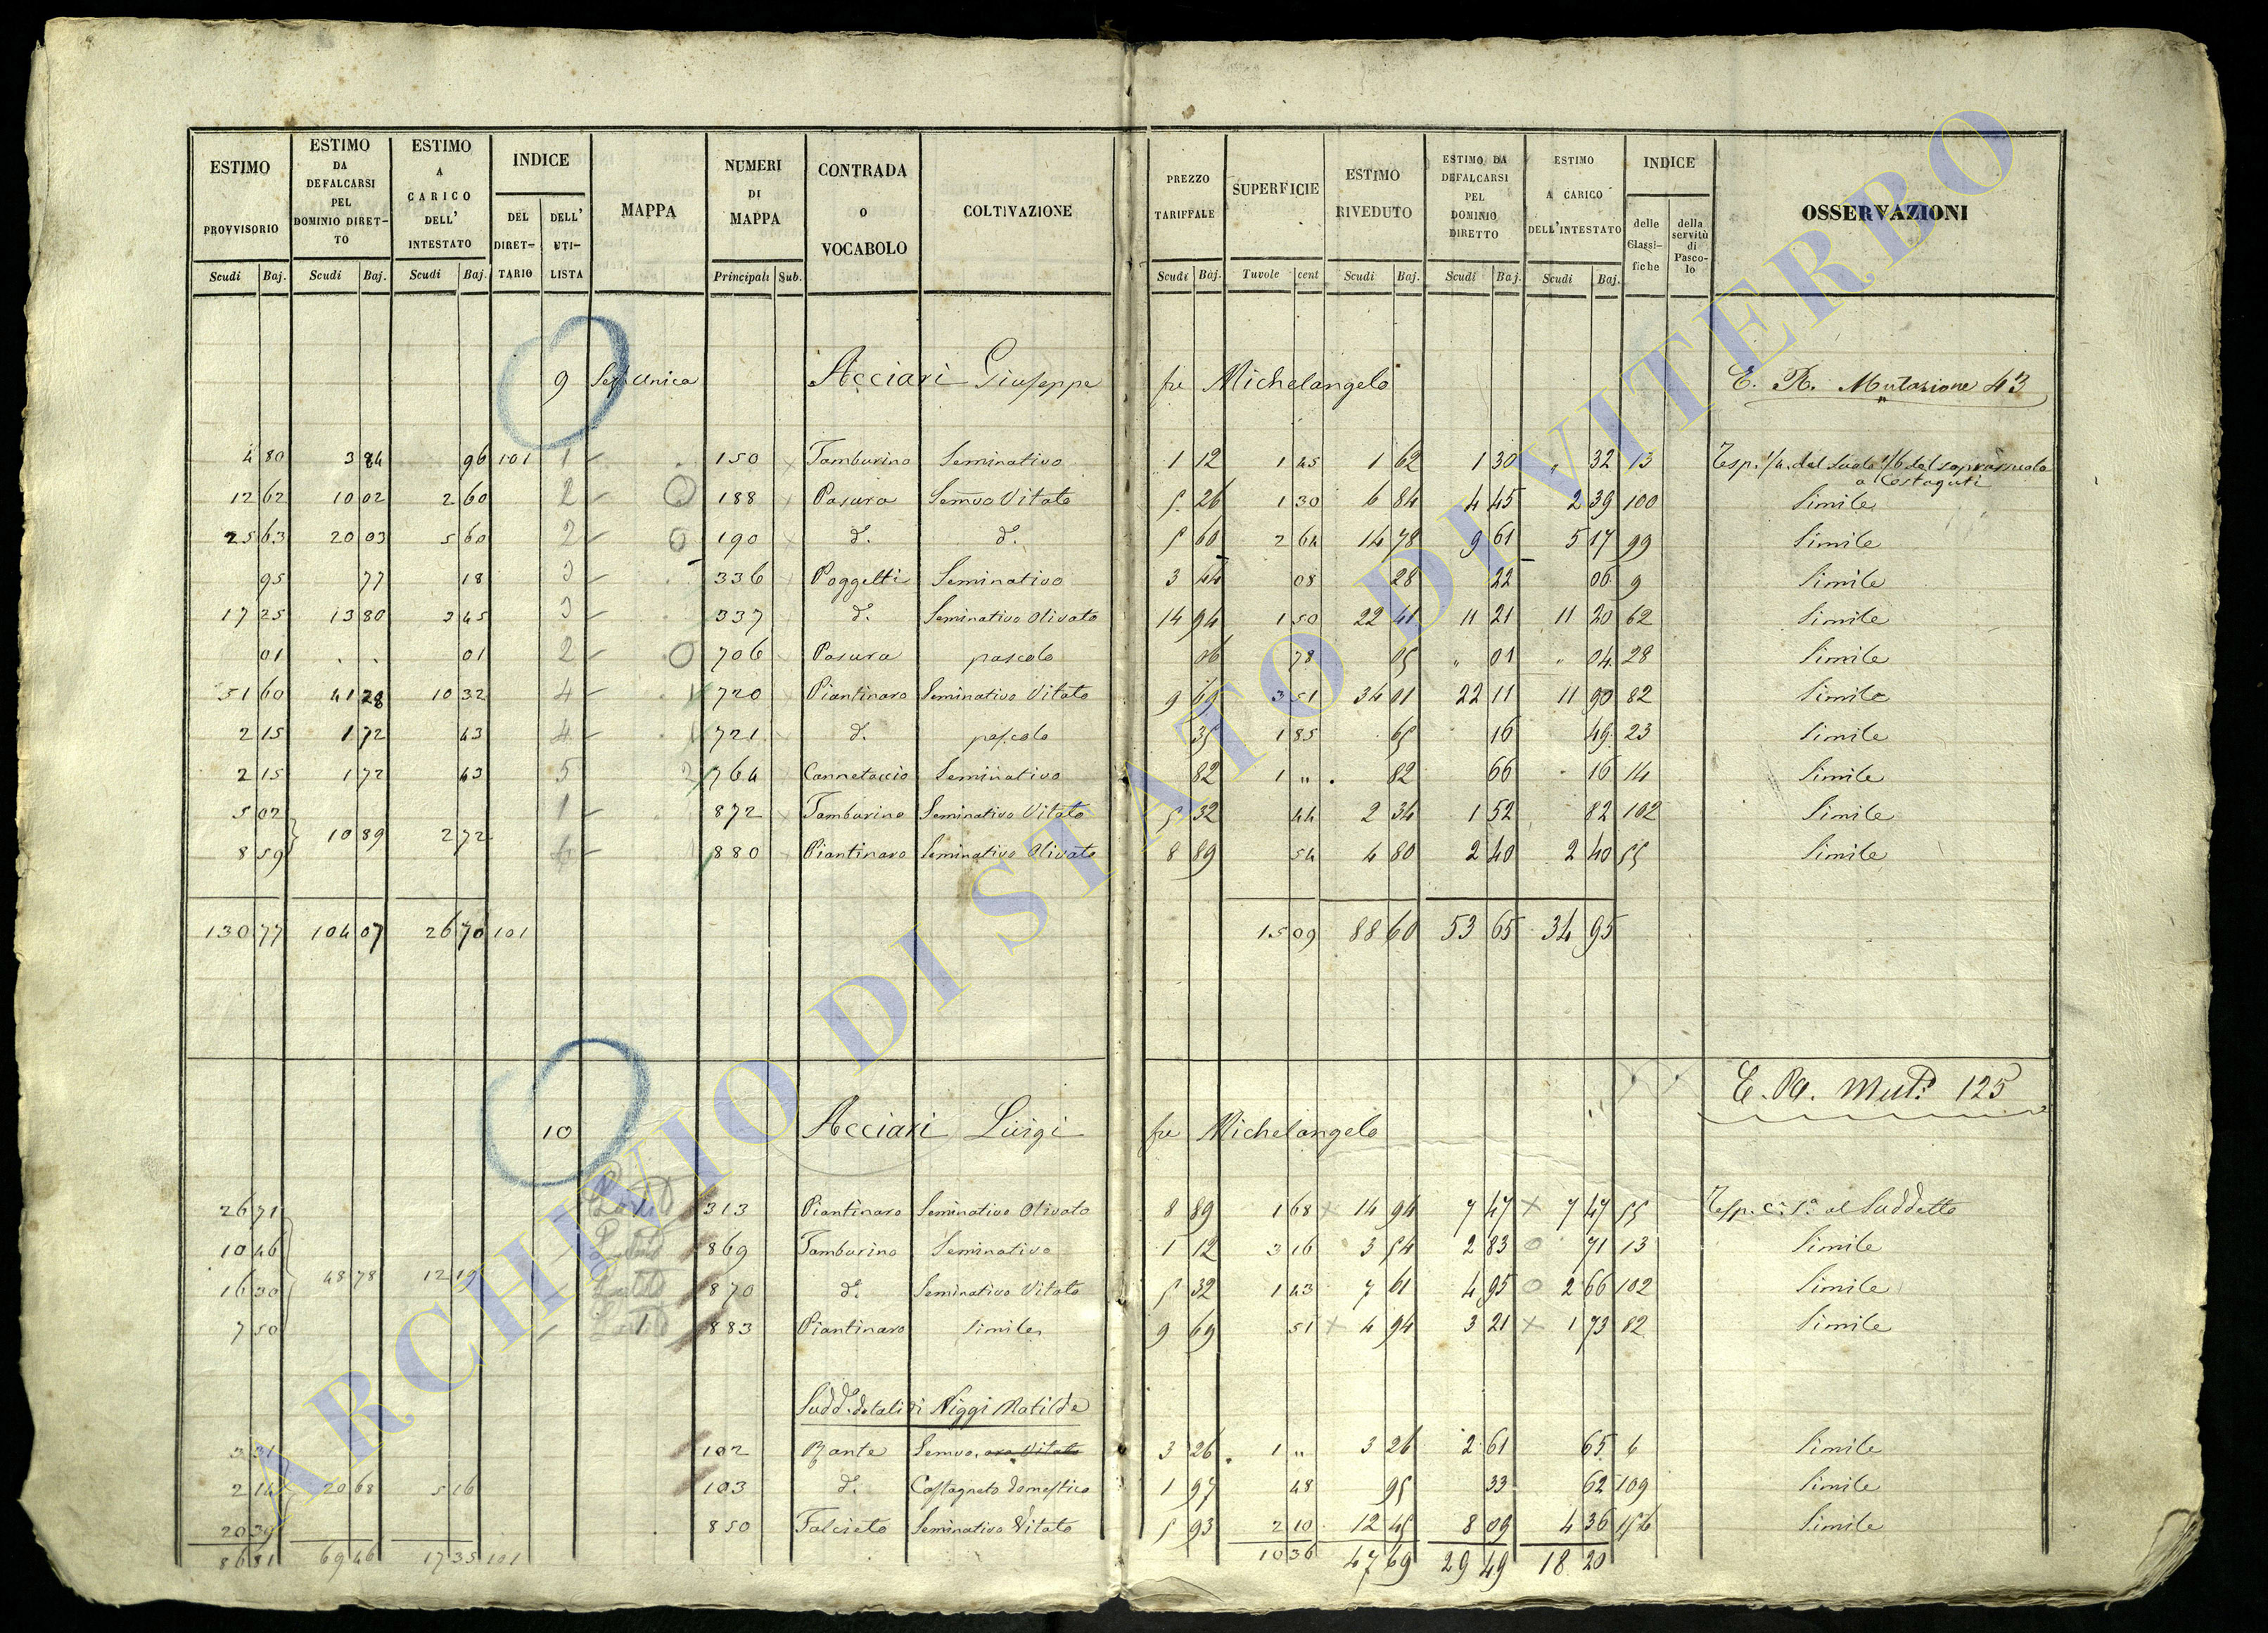 ESTIMO PROVVISORIO Scudi Baj.
ESTIMO DA DEFALCARSI PEL DOMINIO DIRET-TO Scudi Baj.
ESTIMO A CARICO DELL' INTESTATO Scudi Baj.
INDICE DEL DIRET-TARIO DELL' UTI-LISTA
MAPPA
NUMERI DI MAPPA Principali Sub.
CONTRADA O VOCABOLO
COLTIVAZIONE
PREZZO TARIFFALE Scudi Baj.
SUPERFICIE Tavole cent
ESTIMO RIVEDUTO Scudi Baj.
ESTIMO DA DEFALCARSI PEL DOMINIO DIRETTO Scudi Baj.
ESTIMO A CARICO DELL'INTESTATO Scudi Baj.
INDICE delle Classi-fiche della servitù di Pasco-lo
OSSERVAZIONI
9 Sez. Unica Acciari Giuseppe fu Michelangelo E. R. Mutazione 43
4 80 3 84 96 101 1 150 Tamburino Seminativo 1 12 1 45 1 62 1 30 " 32 13 Resp. 1/4 del suolo 1/6 del soprasuolo
a Costaguti
12 62 10 02 2 60 2 188 Pasura Semvo Vitato 5 26 1 30 6 84 4 45 2 39 100 Simile
25 63 20 03 5 60 2 190 d. d. 5 60 2 64 14 78 9 61 5 17 99 Simile
95 77 18 3 336 Poggetti Seminativo 3 44 08 28 22 06 9 Simile
17 25 13 80 3 45 3 337 d. Seminativo Olivato 14 94 1 50 22 41 11 21 11 20 62 Simile
01 . . 01 2 706 Pasura pascolo 06 78 05 " 01 " 04 28 Simile
51 60 41 28 10 32 4 720 Piantinaro Seminativo Vitato 9 69 3 51 34 01 22 11 11 90 82 Simile
2 15 1 72 43 4 721 d. pascolo 35 1 85 65 16 49 23 Simile
2 15 1 72 43 5 764 Cannetaccio Seminativo 82 1 " 82 66 16 14 Simile
5 02 1 872 Tamburino Seminativo Vitato 5 32 44 2 34 1 52 82 102 Simile
10 89 2 72
8 59 6 880 Piantinaro Seminativo Olivato 8 89 54 4 80 2 40 2 40 55 Simile
130 77 104 07 26 70 101 15 09 88 60 53 65 34 95
E. R. Mut. 125
10 Acciari Luigi fu Michelangelo
26 71 313 Piantinaro Seminativo Olivato 8 89 1 68 14 94 7 47 7 47 55 Resp. c. s.a al Suddetto
10 46 869 Tamburino Seminativo 1 12 3 16 3 54 2 83 71 13 Simile
48 78 12 19
16 30 870 d. Seminativo Vitato 5 32 1 43 7 61 4 95 2 66 102 Simile
7 50 883 Piantinaro Simile 9 69 51 4 94 3 21 1 73 82 Simile
Sudd. dotali di Niggi Matilde
3 31 102 Zante Semvo. 3 26 1 " 3 26 2 61 65 6 Simile
2 14 20 68 5 16 103 d. Castagneto domestico 1 97 48 95 33 62 109 Simile
20 39 850 Falcieto Seminativo Vitato 5 93 2 10 12 45 8 09 4 36 Simile
86 81 69 46 17 35 101 10 36 47 69 29 49 18 20
ARCHIVIO DI STATO DI VITERBO